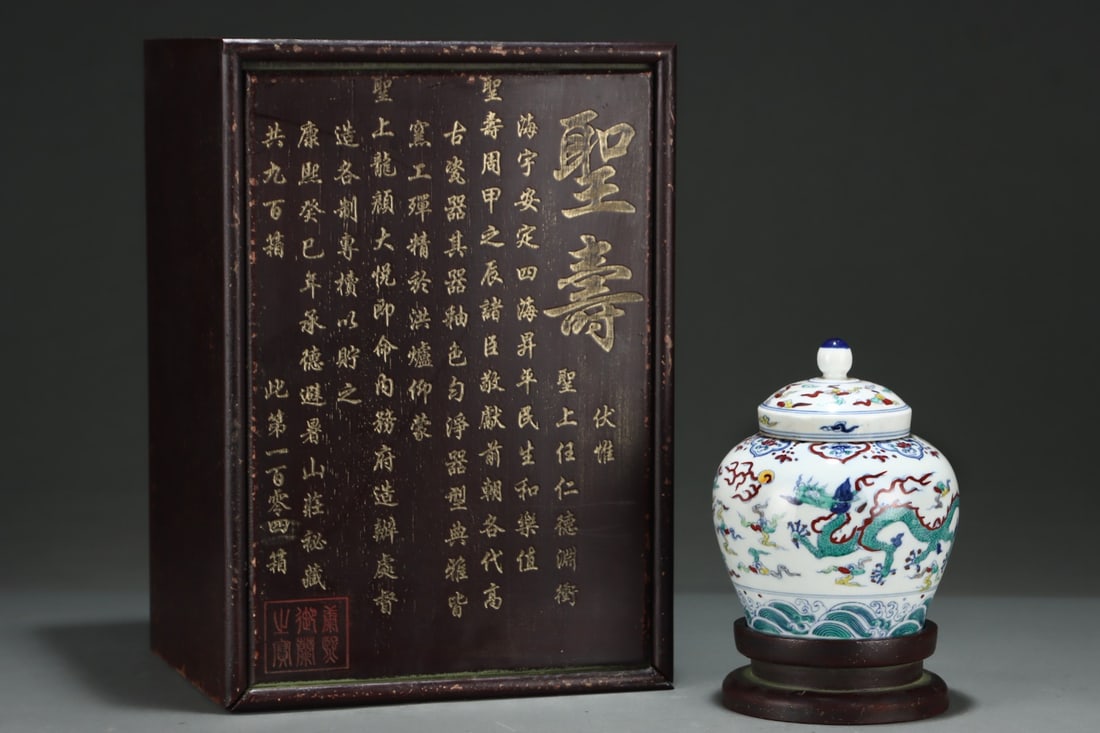 聖壽
伏惟
聖上任仁德淵衝
海宇安定四海昇平民生和樂值
聖壽周甲之辰諸臣敬獻前朝各代高
古瓷器其器釉色勻淨器型典雅皆
窯工殫精於洪爐仰蒙
聖上龍顏大悅即命內務府造辦處督
造各制專櫝以貯之
康熙癸巳年承德避暑山莊祕藏
共九百箱 此第一百零四箱
康熙
御覽
之寶